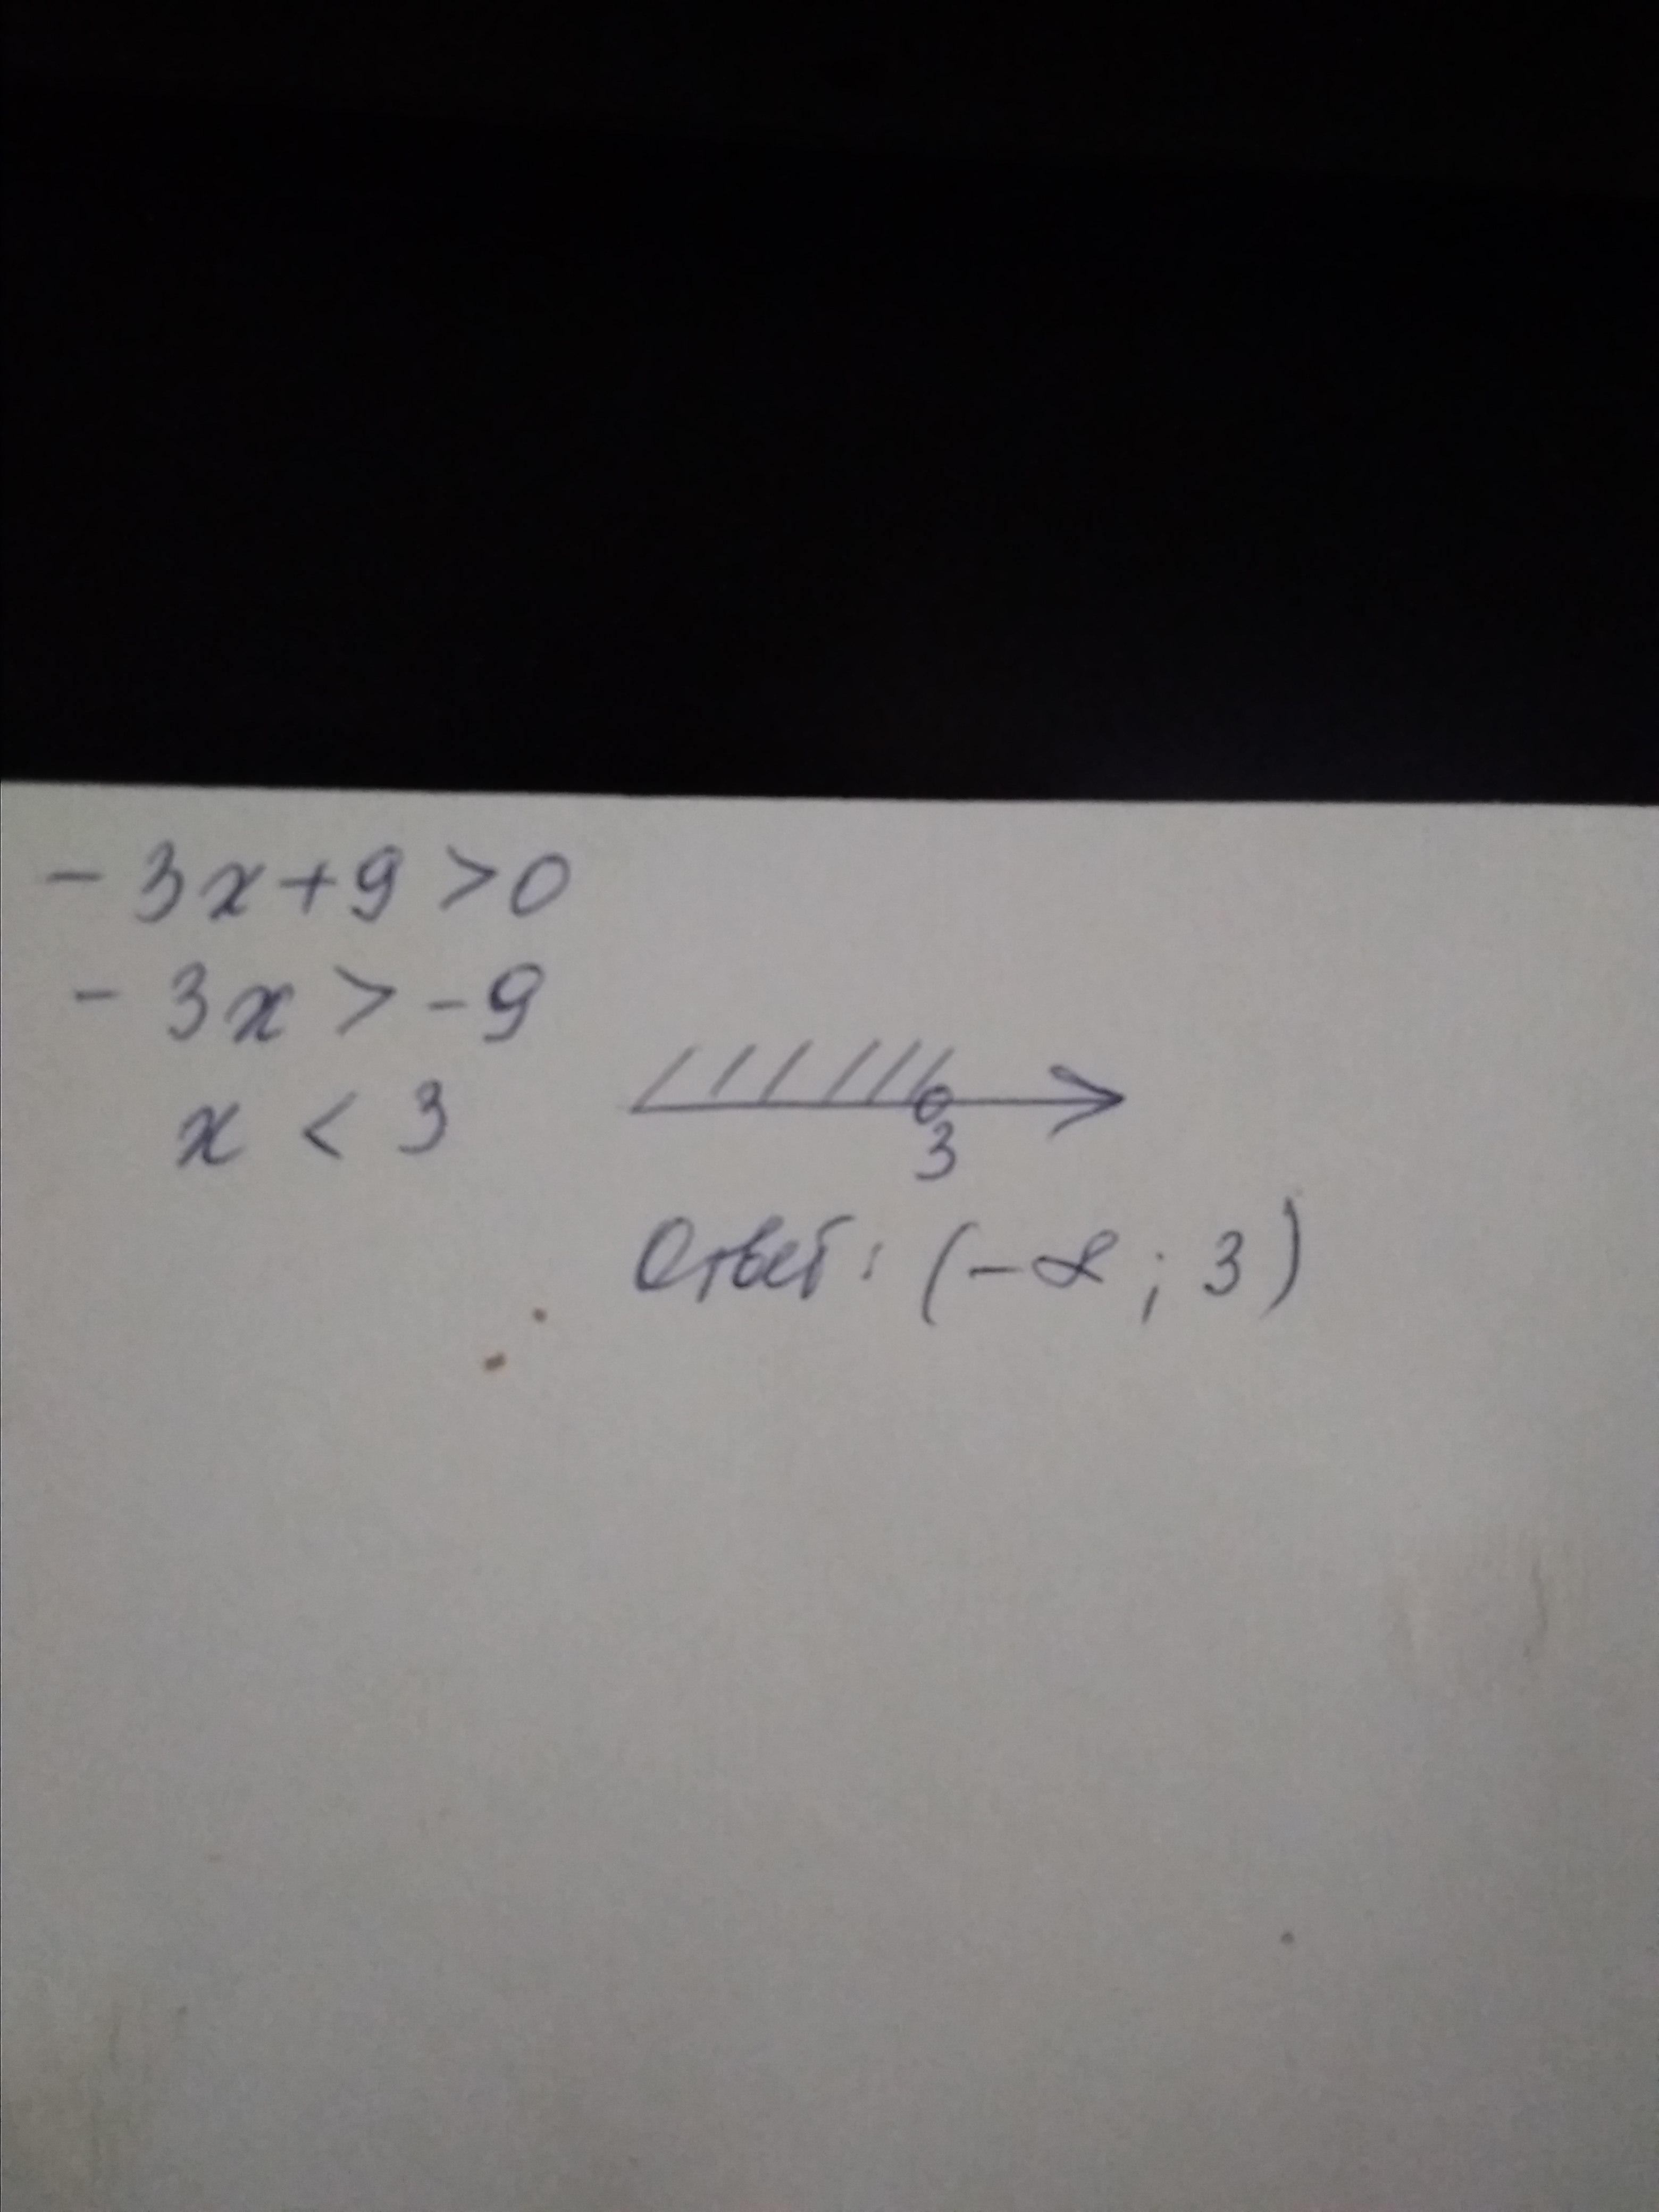 - 3x+9>0
- 3x>-9
x < 3
3
Ответ: (-∞; 3)